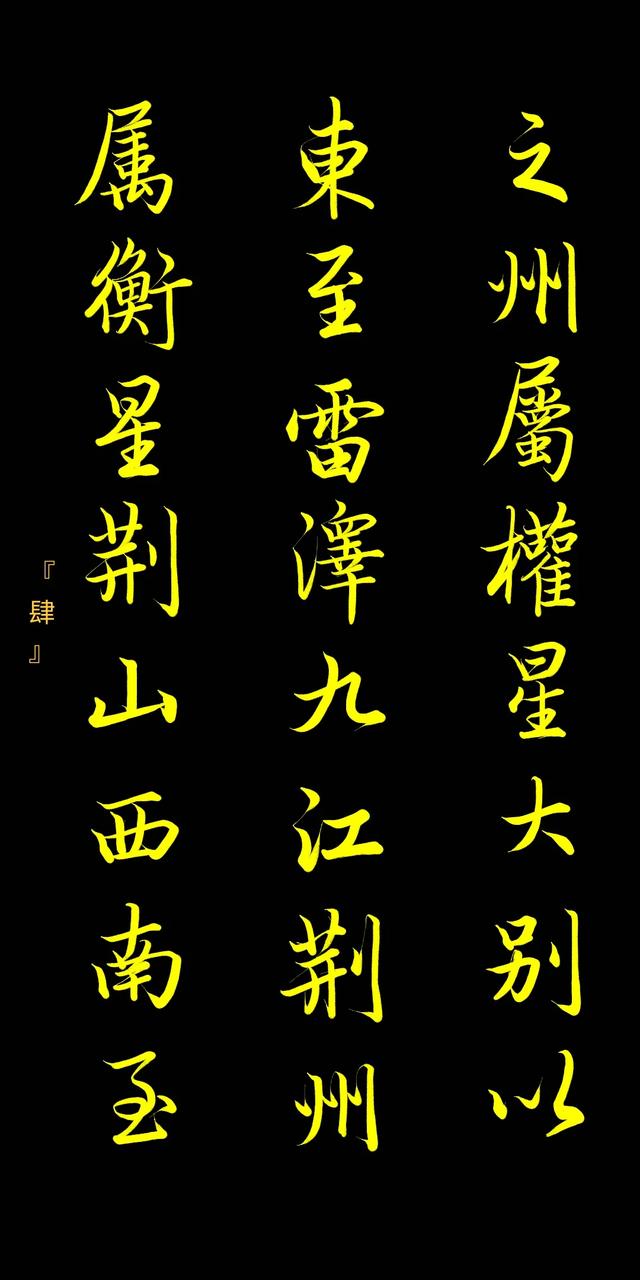 之州屬權星大别以
東至雷澤九江荆州
属衡星荆山西南至
『肆』